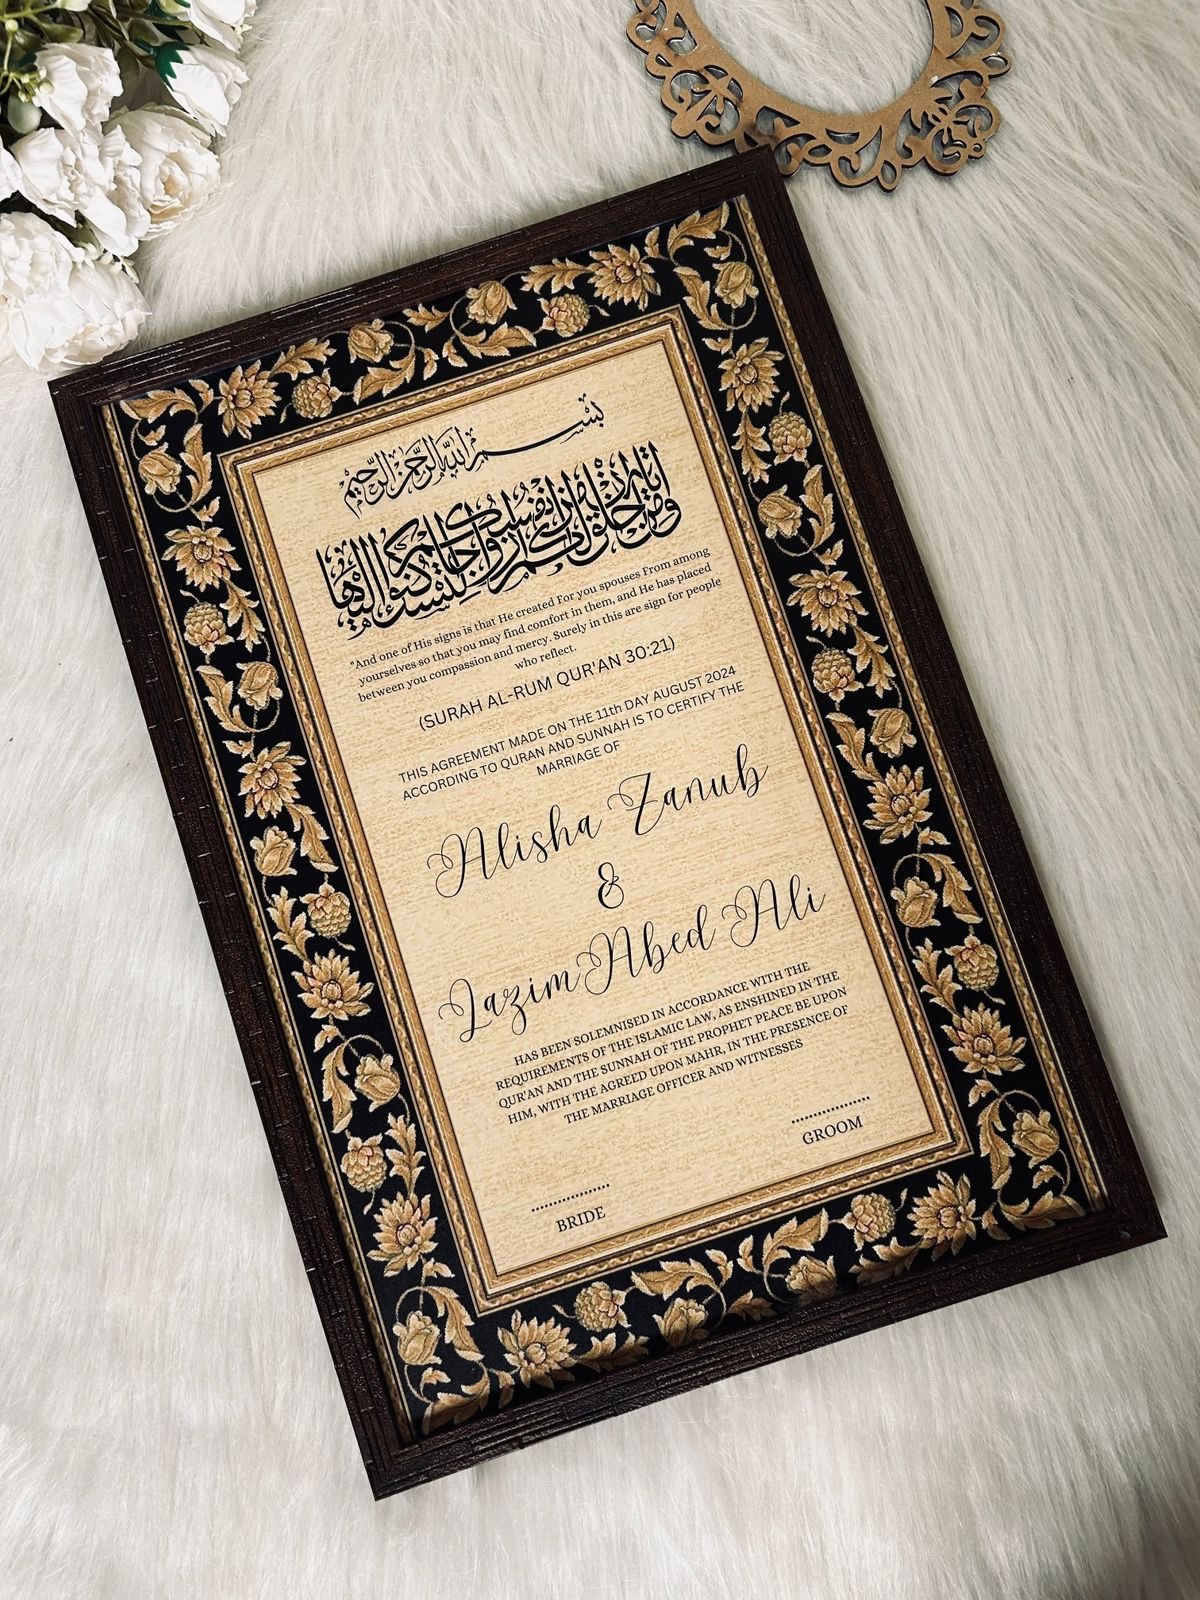 بسم الله الرحمن الرحيم
ومن آياته أن خلق لكم من أنفسكم أزواجا لتسكنوا إليها
"And one of His signs is that He created For you spouses From among
yourselves so that you may find comfort in them, and He has placed
between you compassion and mercy. Surely in this are sign for people
who reflect.
(SURAH AL-RUM QUR'AN 30:21)
THIS AGREEMENT MADE ON THE 11th DAY AUGUST 2024
ACCORDING TO QURAN AND SUNNAH IS TO CERTIFY THE
MARRIAGE OF
Alisha Zanub
&
Lazim Abed Ali
HAS BEEN SOLEMNISED IN ACCORDANCE WITH THE
REQUIREMENTS OF THE ISLAMIC LAW, AS ENSHINED IN THE
QUR'AN AND THE SUNNAH OF THE PROPHET PEACE BE UPON
HIM, WITH THE AGREED UPON MAHR, IN THE PRESENCE OF
THE MARRIAGE OFFICER AND WITNESSES
GROOM
BRIDE